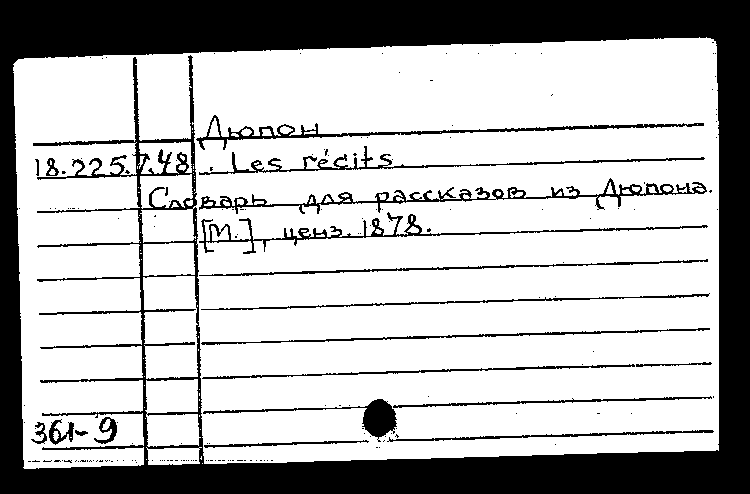 Дюпон
18.225.7.48. Les récits.
Словарь для рассказов из Дюпона.
[М.], ценз. 1878.
361-9